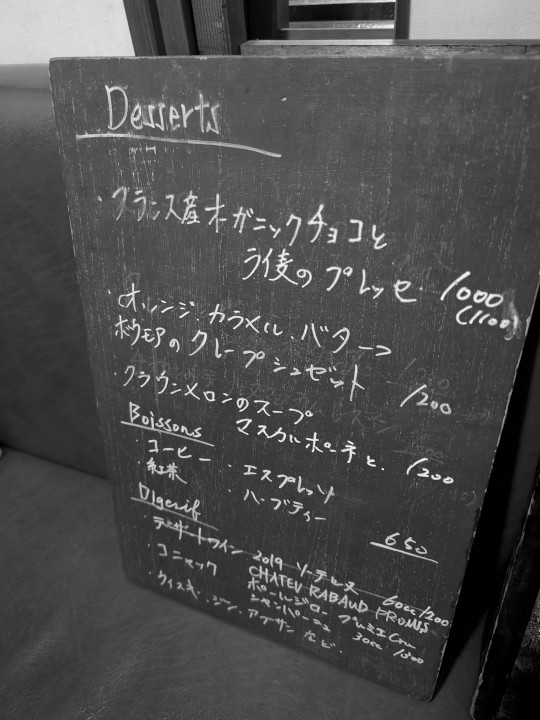 Desserts
・フランス産オーガニックチョコと
ライ麦のプレッセ. 1000
(1100)
・オレンジ.カラメル.バター
ボウモアのクレープシュゼット 1200
・クラウンメロンのスープ
マスカルポーネと. 1200
Boissons
・コーヒー ・エスプレッソ
・紅茶 ・ハーブティー
650
Digerif
・デザートワイン 2019 ソーテルヌ
CHATEU RABAUD PROMIS 60cc/1200
コニャック ポールジロー プルミエCru
シャンパーニュ 30cc 1300
・ウィスキー.ジン.アブサン など.